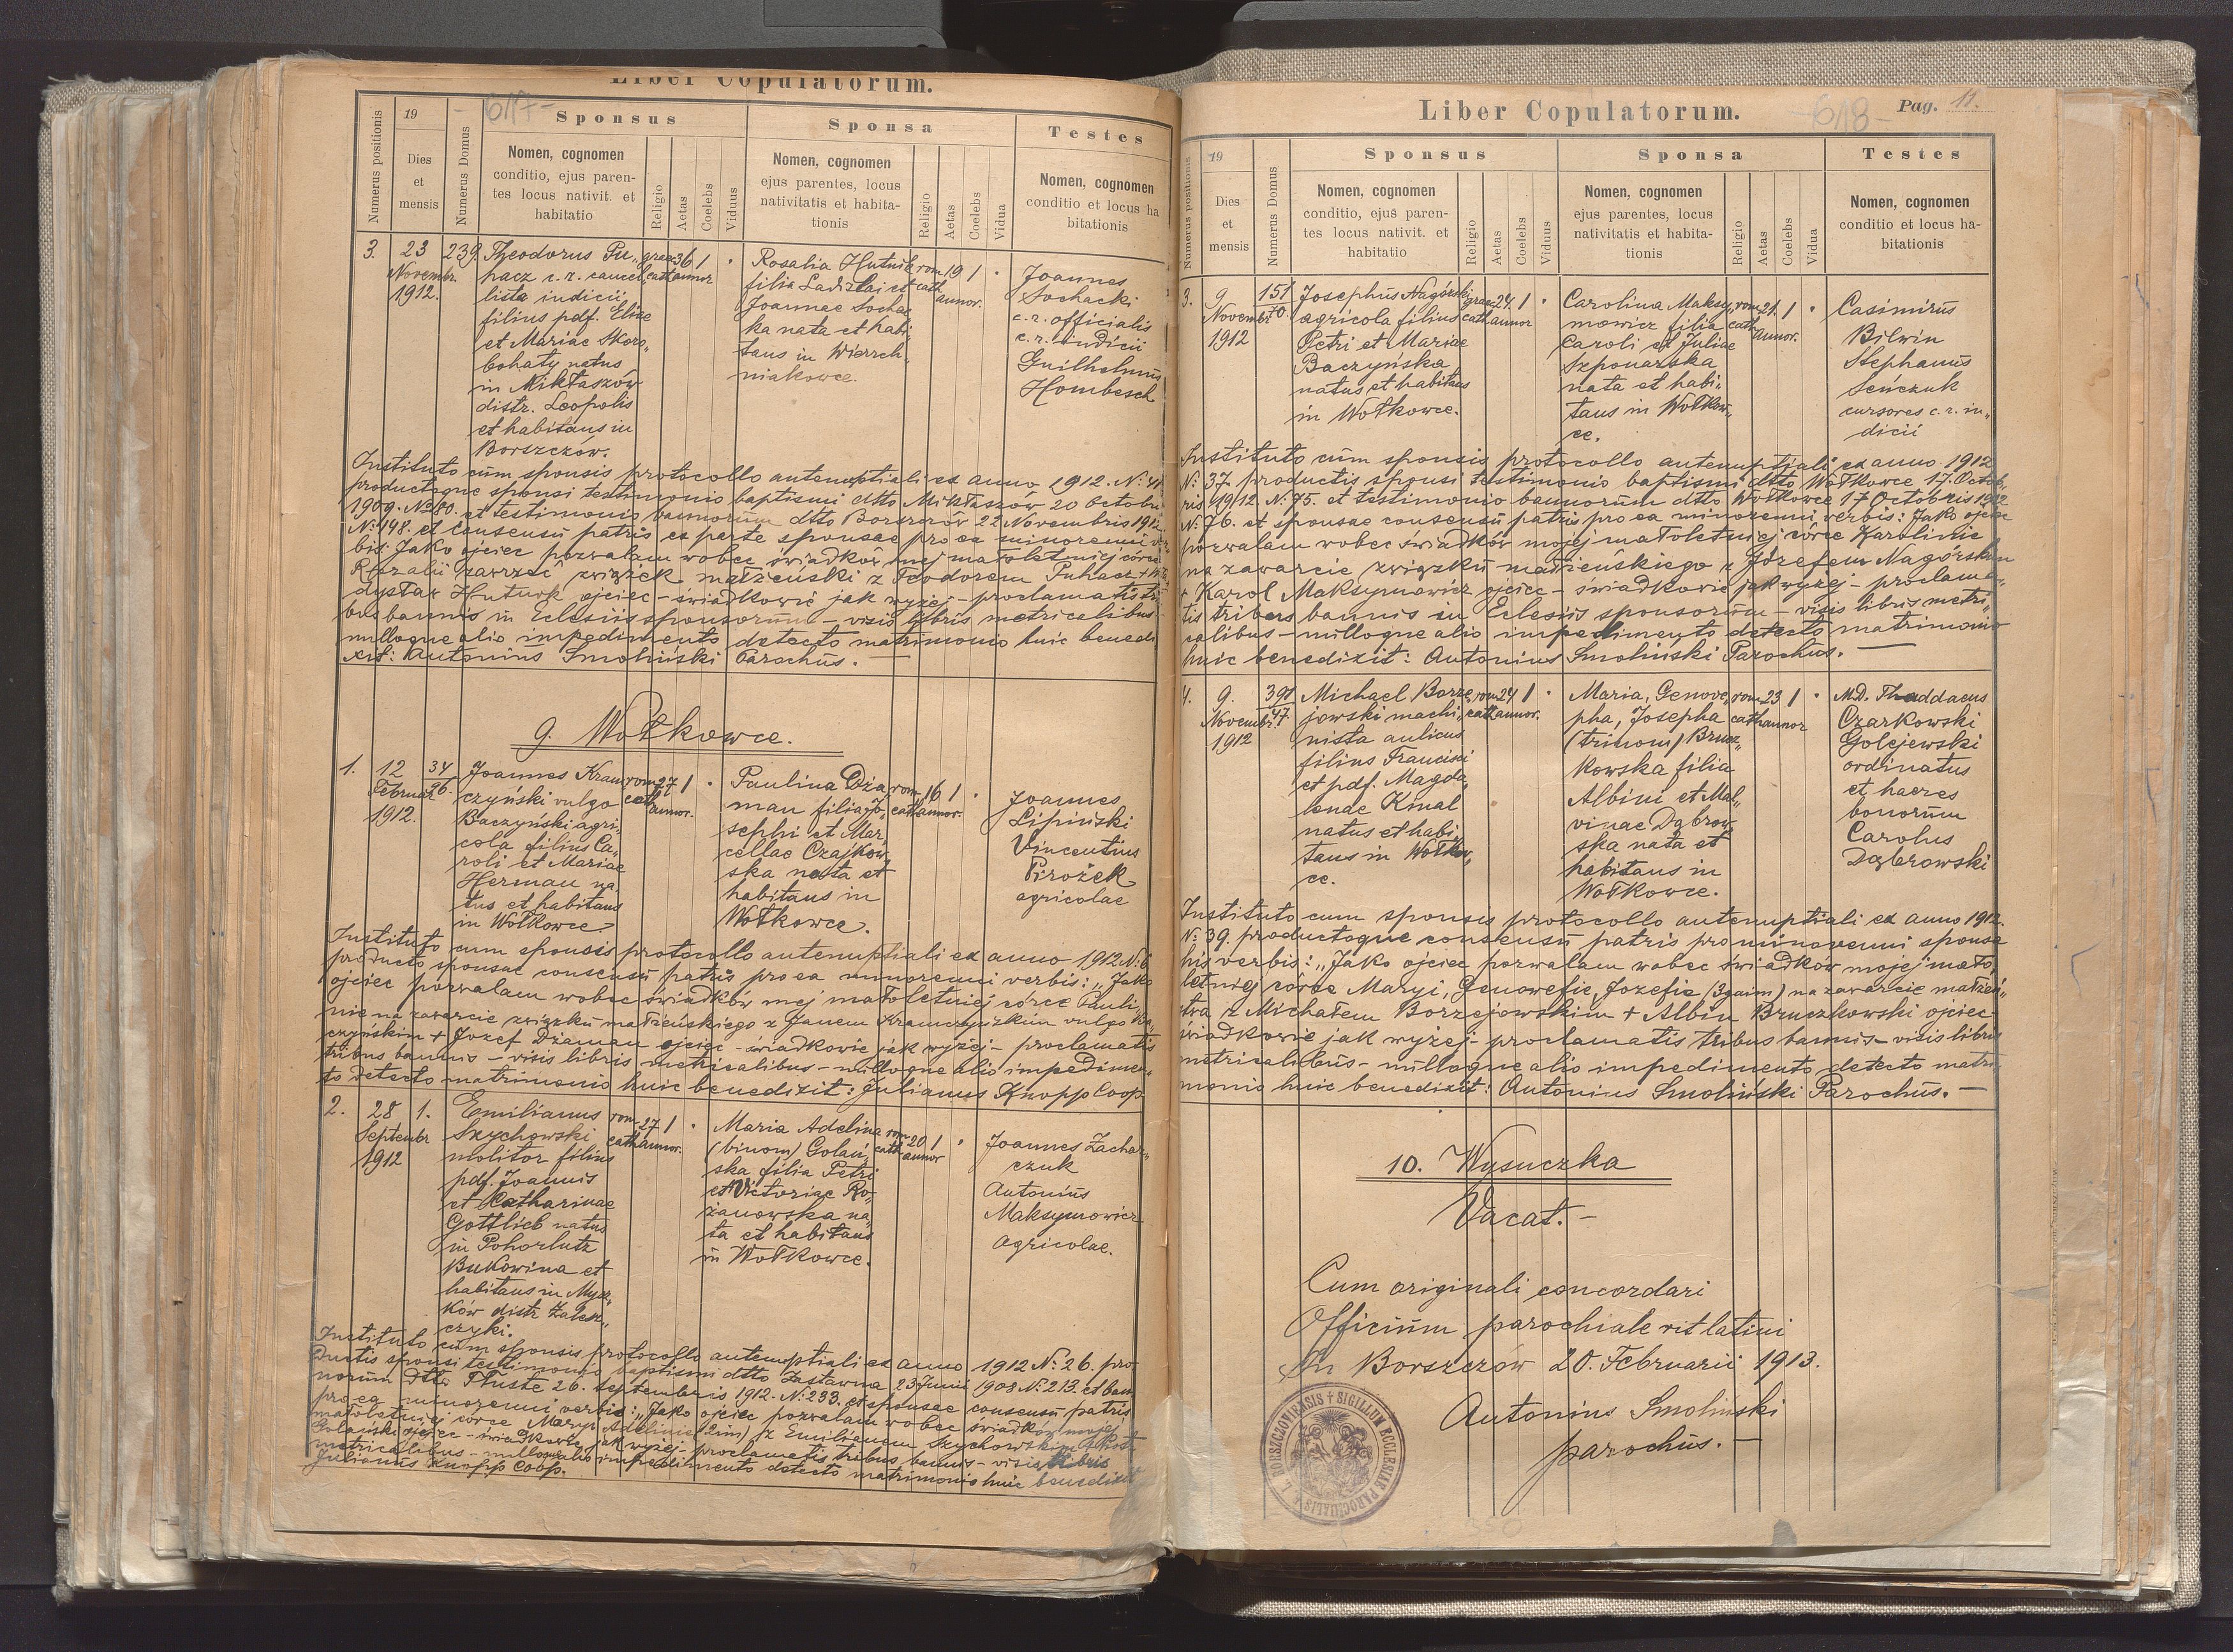 Liber Copulatorum.
617-
Numerus positionis
19
Dies
et
mensis
Numerus Domus
Sponsus
Nomen, cognomen
conditio, ejus paren-
tes locus nativit. et
habitatio
Religio
Aetas
Coelebs
Viduus
Sponsa
Nomen, cognomen
ejus parentes, locus
nativitatis et habita-
tionis
Religio
Aetas
Coelebs
Vidua
Testes
Nomen, cognomen
conditio et locus ha
bitationis
3.
23
Novembr.
1912.
239.
Theodorus Pu„
hacz c. r. cancel„
lista iudicii
filius pdf. Eliae
et Mariae Skoro„
bohaty natus
in Mikłaszów
distr. Leopolis
et habitans in
Borszczów.
graec
cath
36
annor
1
Rosalia Hutnik
filia Ladislai et
Joannae Sochac
ka nata et habi„
tans in Wierzch„
niakowce.
rom
cath
19
annor.
1
Joannes
Sochacki
c. r. officialis
c. r. indicii
Guilhelmus
Hombesch
Instituto cum sponsis protocollo antenuptiali ex anno 1912. N: 41
productoque sponsi testimonio baptismi dtto Mikłaszów 20 octobris
1909. N: 80. et testimonio bannorum dtto Borszczów 22 Novembris 1912.
N: 148. et consensu patris ex parte sponsae pro ea minorenni ver
bis: Jako ojciec pozwalam wobec świadków mej małoletniej córce
Rozalii zawrzeć związek małżeński z Teodorem Puhacz + Wła
dysław Hutnik ojciec - świadkowie jak wyżej - proclamatis tri
bus bannis in Eclesiis sponsorum - visis libris metricalibus
nulloque alio impedimento detecto matrimonio huic benedi
xit: Antonius Smoliński Parochus. -
9. Wołkowce.
1.
12
Februar
1912.
34
26.
Joannes Kram„
czyński vulgo
Baczyński agri„
cola filius Ca„
roli et Mariae
Herman na„
tus et habitans
in Wołkowce
rom
cath
27
annor.
1
Paulina Dża„
man filia Jo„
sephi et Mar„
cellae Czajkow„
ska nata et
habitans in
Wołkowce.
rom
cath
16
annor.
1
Joannes
Lipiński
Vincentius
Pirożek
agricolae
Instituto cum sponsis protocollo antenuptiali ex anno 1912 N: 6
producto sponsae consensu patris pro ea minorenni verbis: „Jako
ojciec pozwalam wobec świadków mej małoletniej córce Pauli„
nie na zawarcie związku małżeńskiego z Janem Kramczyńskim vulgo Ba„
czyńskim + Józef Dżaman ojciec - świadkowie jak wyżej - proclamatis
tribus bannis - visis libris metricalibus - nulloque alio impedimen„
to detecto matrimonio huic benedixit: Julianus Knopp Coop.
2.
28
Septembr
1912
1.
Emilianus
Szychowski
molitor filius
pdf. Joannis
et Catharinae
Gottlieb natus
in Pohorlutz
Bukowina et
habitans in Mysz„
ków distr Zalesz„
czyki.
rom
cath
27
annor.
1
Maria Adelina
(binom) Golań„
ska filia Petri
et Victoriae Ro„
żanowska na„
ta et habitans
in Wołkowce.
rom
cath
20
annor
1
Joannes Zachar„
czuk
Antonius
Maksymowicz
Agricolae.
Instituto cum sponsis protocollo antenuptiali ex anno 1912 N: 26. pro
ductis sponsi testimonio baptismi dtto Zastawna 23 Junii 1908 N: 213. et ban
norum dtto Tłuste 26. septembris 1912. N: 233. et sponsae consensu patris
pro ea minorenni verbis: „Jako ojciec pozwalam wobec świadków mojej
małoletniej córce Maryi Adelinie (2im) z Emilianem Szychowskim + Piotr
Golański ojciec - świadkowie jak wyżej - proclamatis tribus bannis - visis libris
metricalibus - nulloque alio impedimento detecto matrimonio huic benedixit
Julianus Knopp Coop.
Liber Copulatorum.
618-
Pag. 11.
Numerus positionis
19
Dies
et
mensis
Numerus Domus
Sponsus
Nomen, cognomen
conditio, ejus paren-
tes locus nativit. et
habitatio
Religio
Aetas
Coelebs
Viduus
Sponsa
Nomen, cognomen
ejus parentes, locus
nativitatis et habita-
tionis
Religio
Aetas
Coelebs
Vidua
Testes
Nomen, cognomen
conditio et locus ha-
bitationis
3.
9
Novembr
1912
151
70.
Josephus Nagórski
agricola filius
Petri et Mariae
Baczyńska
natus et habitans
in Wołkowce.
graec
cath
24.
annor
1
Carolina Maksy„
mowicz filia
Caroli et Juliae
Szponarska
nata et habi„
tans in Wołkow„
ce.
rom
cath
21.
annor.
1
Casimirus
Bilwin
Stephanus
Seńczuk
cursores c. r. iu„
dicii
Instituto cum sponsis protocollo antenuptiali ex anno 1912
N: 37 productis sponsi testimonio baptismi dtto Wołkowce 17. Octob„
ris 1912 N: 75. et testimonio bannorum dtto Wołkowce 17 Octobris 1912
N: 76. et sponsae consensu patris pro ea minorenni verbis: Jako ojciec
pozwalam wobec świadków mojej małoletniej córce Karolinie
na zawarcie związku małżeńskiego z Józefem Nagórskim
+ Karol Maksymowicz ojciec - świadkowie jak wyżej - proclama„
tis tribus bannis in Eclesiis sponsorum - visis libris metri„
calibus - nulloque alio impedimento detecto matrimonio
huic benedixit: Antonius Smoliński Parochus. -
4.
9.
Novembr.
1912
391
47.
Michael Borze„
jowski machi„
nista aulicus
filius Francisci
et pdf. Magda„
lenae Kinal
natus et habi„
tans in Wołkow„
ce.
rom
cath
24
annor.
1
Maria, Genove„
pha, Josepha
(trinom) Brucz„
kowska filia
Albini et Mal„
vinae Dąbrow„
ska nata et
habitans in
Wołkowce.
rom
cath
23
annor
1
MD. Thaddaeus
Czarkowski
Golejewski
ordinatus
et haeres
bonorum
Carolus
Dąbrowski
Instituto cum sponsis protocollo antenuptiali ex anno 1912.
N: 39. productoque consensu patris pro minorenni sponsa
his verbis: „Jako ojciec pozwalam wobec świadków mojej mało„
letniej córce Maryi, Genowefie, Jozefie (3gaim) na zawarcie małżeń„
stwa z Michałem Borzejowskim + Albin Bruczkowski ojciec
świadkowie jak wyżej - proclamatis tribus bannis - visis libris
metricalibus - nulloque alio impedimento detecto matri„
monio huic benedixit: Antonius Smoliński Parochus. -
10. Wysuczka
Vacat. -
Cum originali concordari
Officium parochiale rit latini
In Borszczów 20. Februarii 1913.
Antonius Smoliński
parochus. -
SIGILLUM ECCLESIAE PAROCHIALIS R. L. BORSZCZOVIENSIS